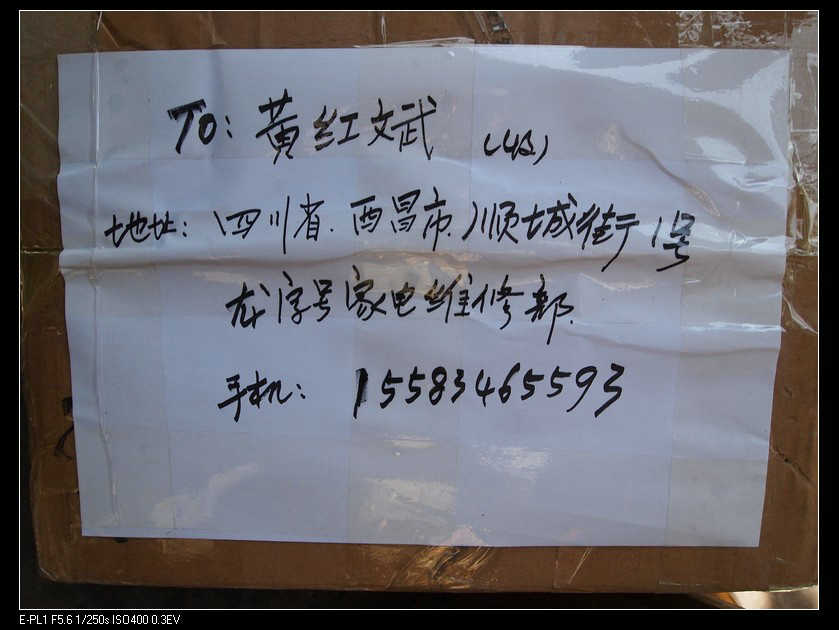 To: 黄红文武 (收)
地址: 四川省.西昌市.顺城街1号
龙字号家电维修部.
手机: 15583465593
E-PL1 F5.6 1/250s ISO400 0.3EV